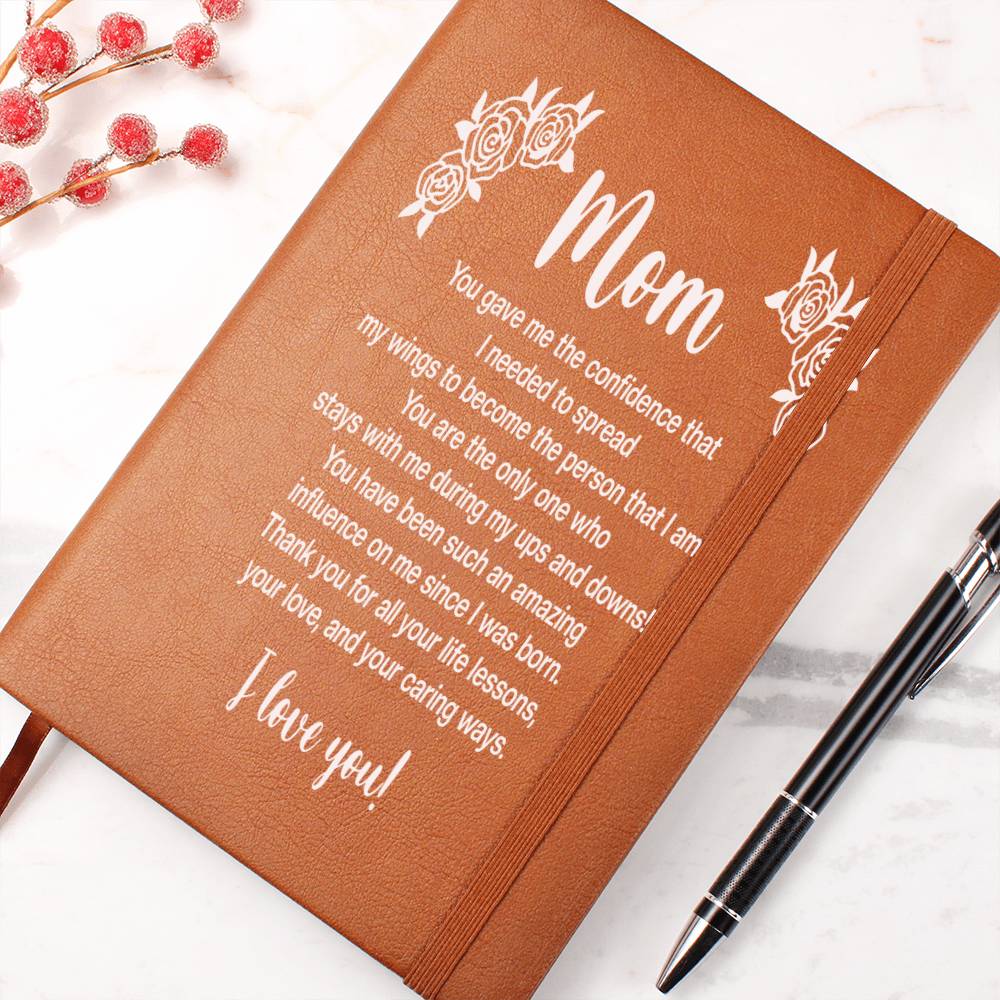 Mom
You gave me the confidence that
I needed to spread
my wings to become the person that I am
You are the only one who
stays with me during my ups and downs!
You have been such an amazing
influence on me since I was born.
Thank you for all your life lessons,
your love, and your caring ways.
I love you!